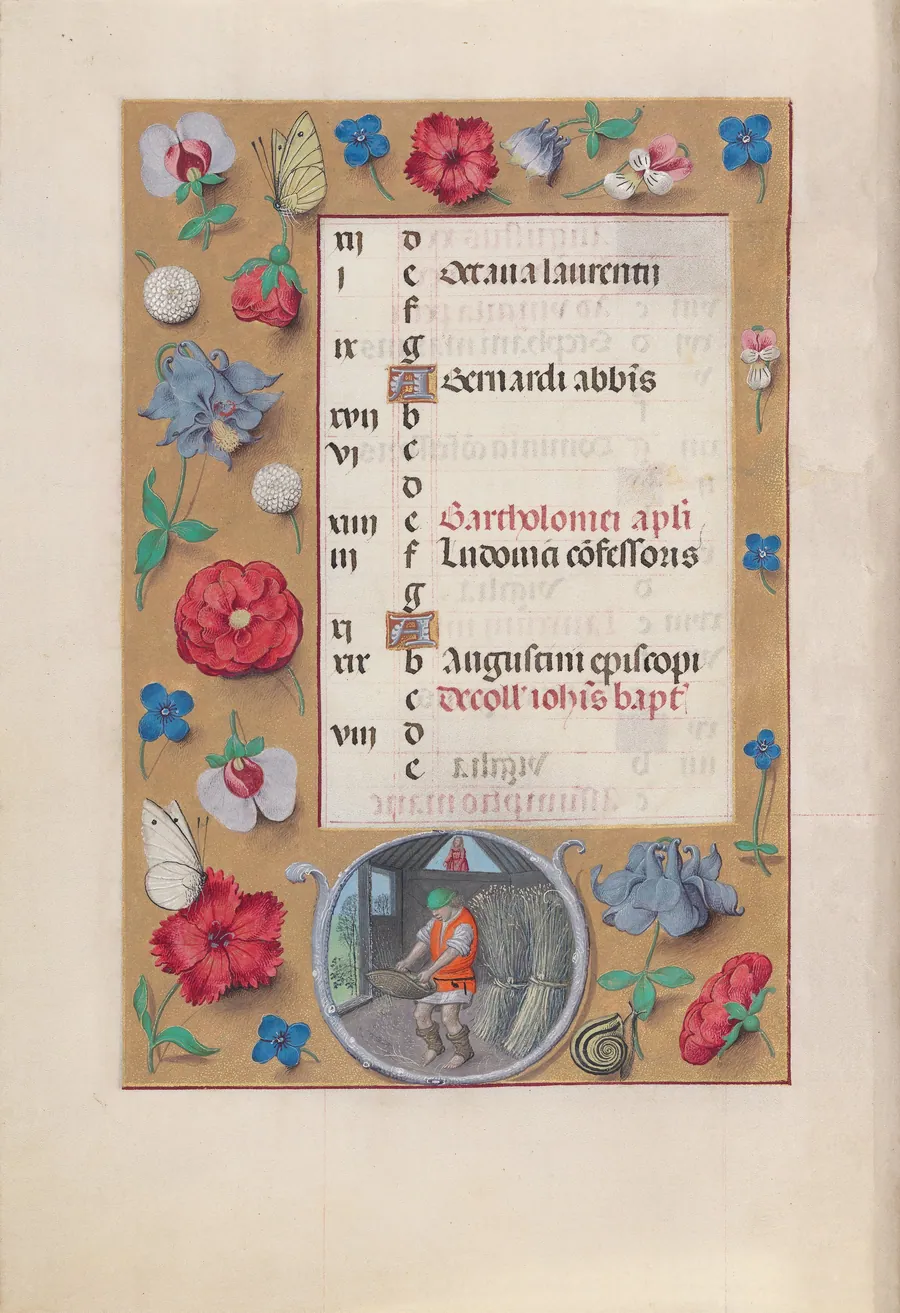 xij d
j e Octaua laurentij
f
ix g
A Bernardi abbĩs
xvij b
vj c
d
xiiij e Bartholomei apłi
iij f Ludouici cõfessoris
g
xj A
xix b Augustini episcopi
c Decoll' iohĩs bapt'
viij d
e